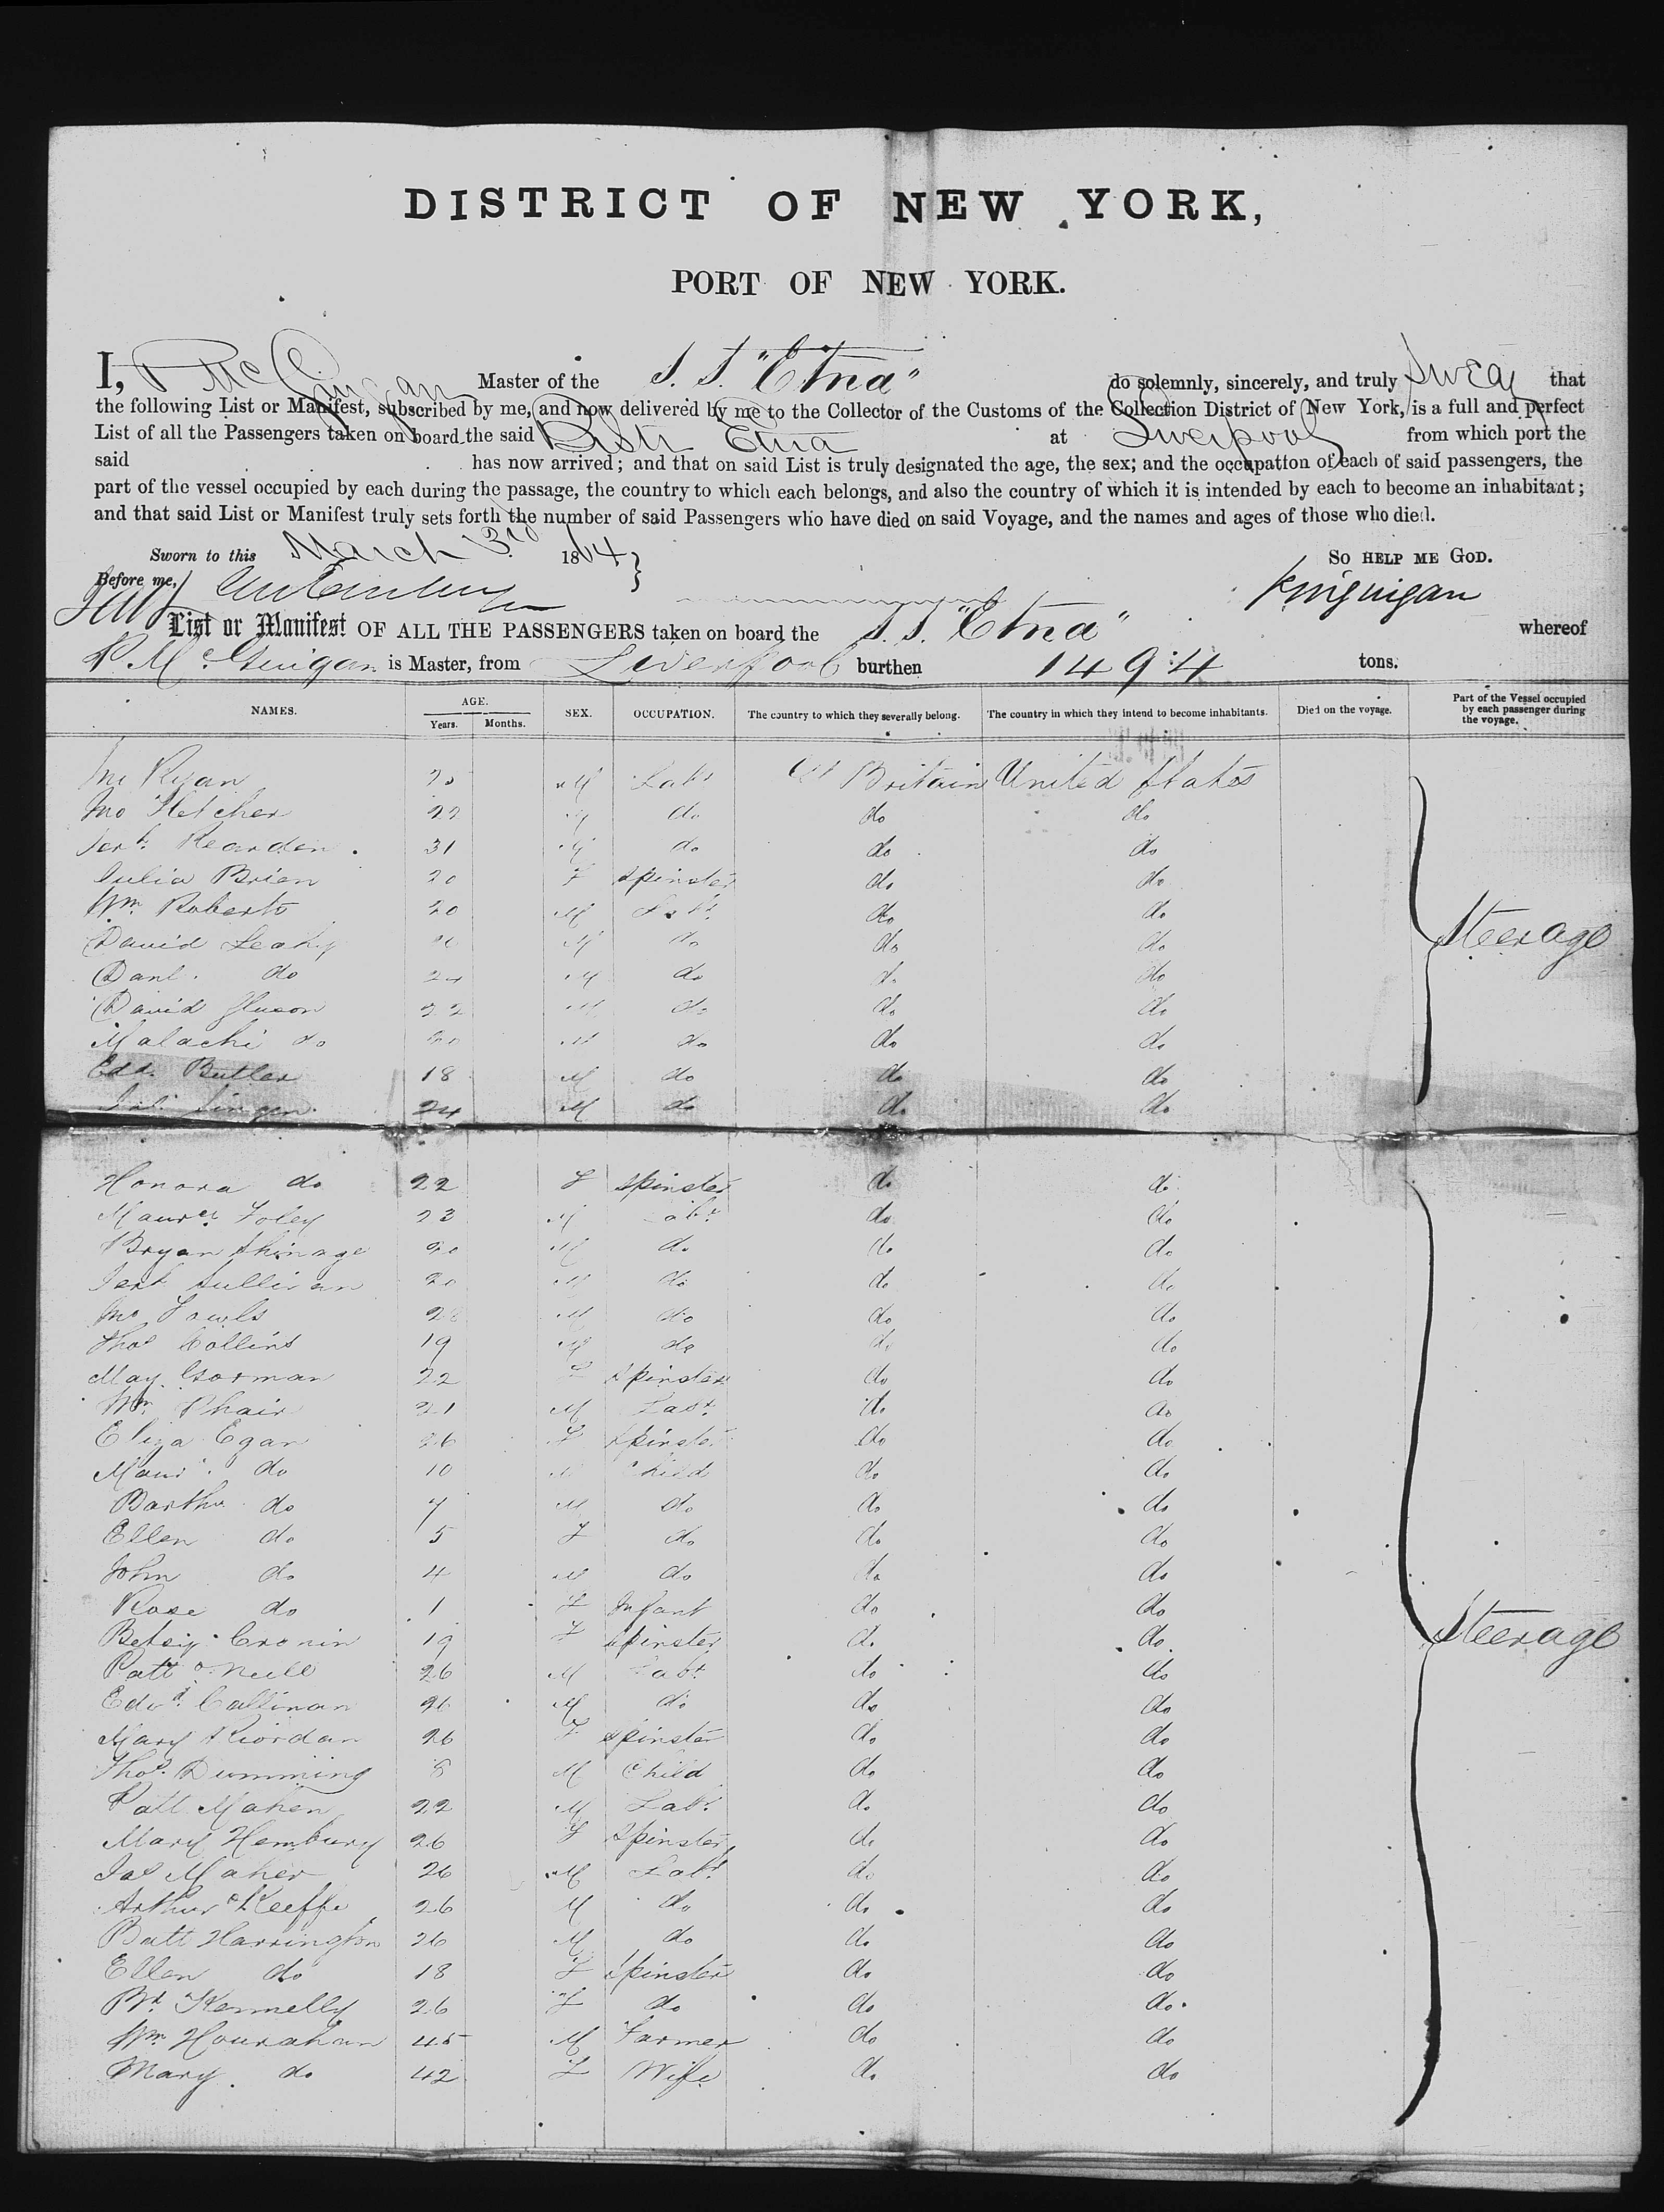 DISTRICT OF NEW YORK,
PORT OF NEW YORK.
I, P McGuigan Master of the S. S. "Etna" do solemnly, sincerely, and truly swear that
the following List or Manifest, subscribed by me, and now delivered by me to the Collector of the Customs of the Collection District of New York, is a full and perfect
List of all the Passengers taken on board the said Etna at Liverpool from which port the
said has now arrived; and that on said List is truly designated the age, the sex; and the occupation of each of said passengers, the
part of the vessel occupied by each during the passage, the country to which each belongs, and also the country of which it is intended by each to become an inhabitant;
and that said List or Manifest truly sets forth the number of said Passengers who have died on said Voyage, and the names and ages of those who died.
Sworn to this March 3rd 1864 } SO HELP ME GOD.
Before me,
List or Manifest OF ALL THE PASSENGERS taken on board the S. S. "Etna" whereof
P. Mc Guigan is Master, from Liverpool burthen 1494 tons.
NAMES. AGE. Years. Months. SEX. OCCUPATION. The country to which they severally belong. The country in which they intend to become inhabitants. Died on the voyage. Part of the Vessel occupied by each passenger during the voyage.
Ryan M Labr Gt Britain United States
Jno Fletcher 22 M do do do
Jerh. Rearden 31 M do do do
Julia Brien 20 F Spinster do do
Wm. Roberts 20 M Labr. do do Steerage
David Leahy M do do do
Danl. do 24 M do do do
David Gleeson 22 M do do do
Malachi do M do do do
Edd. Butler 18 M do do do
24 M do do do
Honora do 22 F Spinster do do
Maurce. Foley 23 M Labr. do do
Bryan 20 M do do do
Jerh Sullivan 20 M do do do
Jno Fowls 28 M do do do
Thos Collins 19 M do do do
May Gorman 22 F Spinster do do
Wm Phair 21 M Labr. do do
Eliza Egan 26 F Spinster do do
Maur. do 10 M Child do do
Barthw do 7 M do do do
Ellen do 5 F do do do
John do 4 M do do do
Rose do 1 F Infant do do
Betsy Cronin 19 F Spinster do do Steerage
Patt O'Neill 26 M Labr do do
Edwd. Callinan 26 M do do do
Mary Riordan 26 F Spinster do do
Thos. Dumming 8 M Child do do
Patt Mahen 22 M Labr. do do
Mary Hembury 26 F Spinster do do
Jas Maher 26 M Labr. do do
Arthur O'Keeffe 26 M do do do
Batt Harrington 26 M do do do
Ellen do 18 F Spinster do do
Bt. Kennelly 26 F do do do
Wm Hourahan 45 M Farmer do do
Mary do 42 F Wife do do